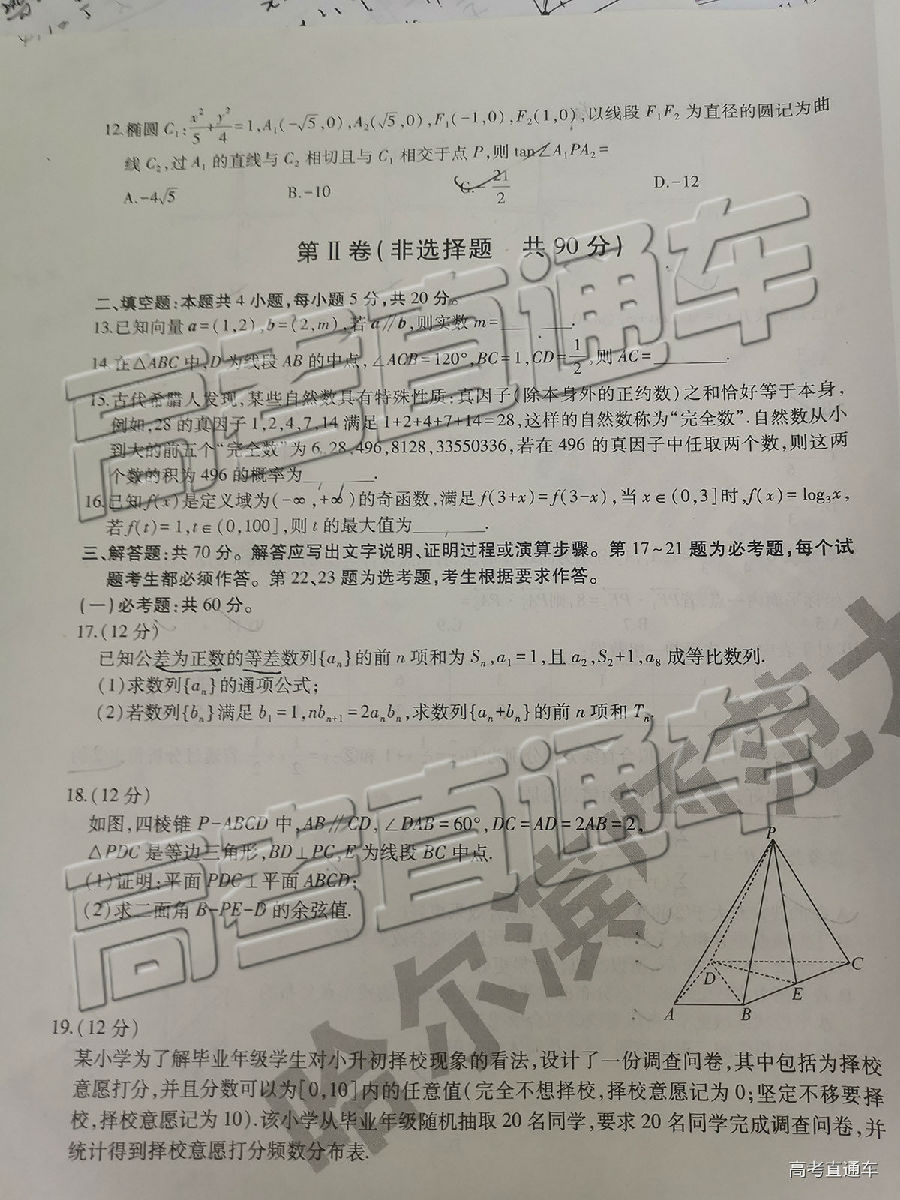 12.椭圆 C₁:x²/5+y²/4=1,A₁(-√5,0),A₂(√5,0),F₁(-1,0),F₂(1,0),以线段 F₁F₂ 为直径的圆记为曲
线 C₂,过 A₁ 的直线与 C₂ 相切且与 C₁ 相交于点 P,则 tan∠A₁PA₂=
A.-4√5 B.-10 C.-21/2 D.-12
第Ⅱ卷(非选择题 共 90 分)
二、填空题:本题共 4 小题,每小题 5 分,共 20 分。
13.已知向量 a=(1,2),b=(2,m),若 a∥b,则实数 m=______.
14.在△ABC 中,D 为线段 AB 的中点,∠ACB=120°,BC=1,CD=1/2,则 AC=______.
15.古代希腊人发现,某些自然数具有特殊性质:真因子(除本身外的正约数)之和恰好等于本身,
例如,28 的真因子 1,2,4,7,14 满足 1+2+4+7+14=28,这样的自然数称为“完全数”.自然数从小
到大的前五个“完全数”为 6,28,496,8128,33550336,若在 496 的真因子中任取两个数,则这两
个数的积为 496 的概率为______.
16.已知 f(x)是定义域为(-∞,+∞)的奇函数,满足 f(3+x)=f(3-x),当 x∈(0,3]时,f(x)=log₃x,
若 f(t)=1,t∈(0,100],则 t 的最大值为______.
三、解答题:共 70 分。解答应写出文字说明、证明过程或演算步骤。第 17~21 题为必考题,每个试
题考生都必须作答。第 22、23 题为选考题,考生根据要求作答。
(一)必考题:共 60 分。
17.(12 分)
已知公差为正数的等差数列{aₙ}的前 n 项和为 Sₙ,a₁=1,且 a₂,S₂+1,a₈ 成等比数列.
(1)求数列{aₙ}的通项公式;
(2)若数列{bₙ}满足 b₁=1,nbₙ₊₁=2aₙbₙ,求数列{aₙ+bₙ}的前 n 项和 Tₙ.
18.(12 分)
如图,四棱锥 P-ABCD 中,AB∥CD,∠DAB=60°,DC=AD=2AB=2,
△PDC 是等边三角形,BD⊥PC,E 为线段 BC 中点.
(1)证明:平面 PDC⊥平面 ABCD;
(2)求二面角 B-PE-D 的余弦值.
P
D
C
E
A
B
19.(12 分)
某小学为了解毕业年级学生对小升初择校现象的看法,设计了一份调查问卷,其中包括为择校
意愿打分,并且分数可以为[0,10]内的任意值(完全不想择校,择校意愿记为 0;坚定不移要择
校,择校意愿记为 10).该小学从毕业年级随机抽取 20 名同学,要求 20 名同学完成调查问卷,并
统计得到择校意愿打分频数分布表.
高考直通车
高考直通车
哈尔滨师范大
高考直通车